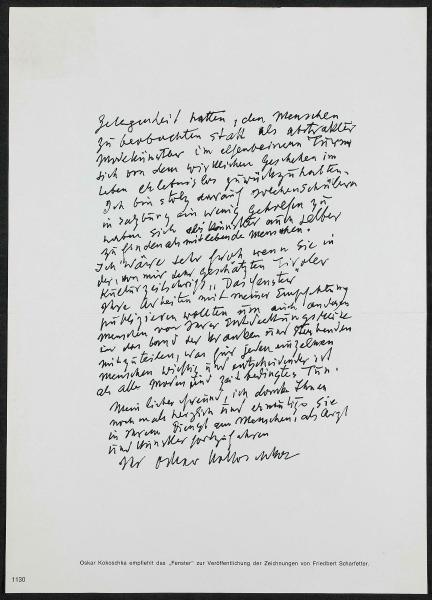 Gelegenheit hatten, den Menschen
zu beobachten statt als abstrakter
Modekünstler im elfenbeinenen Turm
sich von dem wirklichen Geschehen im
Leben erlebnislos zurückzuhalten.
Ich bin stolz darauf solchen Schülern
in Salzburg ein wenig geholfen zu
haben sich als Künstler auch selber
zu finden als mitlebende Menschen.
Ich wäre sehr froh wenn Sie in
der, von mir sehr geschätzten Tiroler
Kulturzeitschrift „Das Fenster"
Ihre Arbeiten mit meiner Empfehlung
publizieren wollten um auch anderen
Menschen von Ihrer Entdeckungsreise
in das Land der Kranken und Sterbenden
mitzuteilen, was für jeden einzelnen
Menschen wichtig und entscheidender ist
als alle Moden und zeitbedingtes Tun.
Mein lieber Freund, ich danke Ihnen
nochmals herzlich und ermutige Sie
in Ihrem Dienst am Menschen, als Arzt
und Künstler fortzufahren
Ihr Oskar Kokoschka
Oskar Kokoschka empfiehlt das „Fenster" zur Veröffentlichung der Zeichnungen von Friedbert Scharfetter.
1130